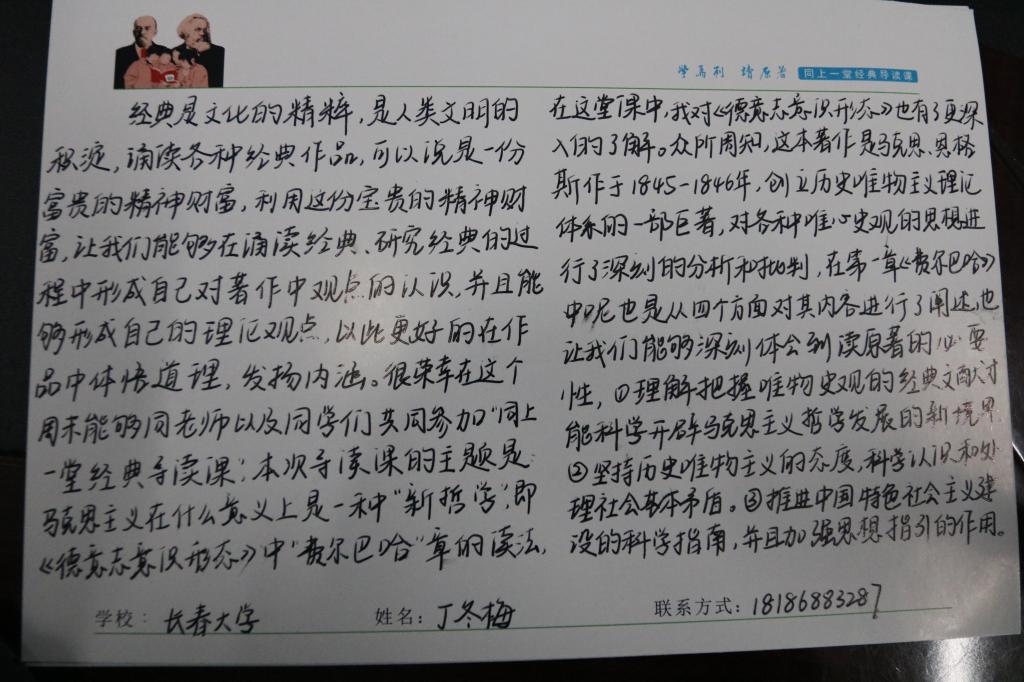 学马列 读原著 同上一堂经典导读课
经典是文化的精粹，是人类文明的
积淀，诵读各种经典作品，可以说是一份
富贵的精神财富，利用这份宝贵的精神财
富，让我们能够在诵读经典、研究经典的过
程中形成自己对著作中观点的认识，并且能
够形成自己的理论观点，以此更好的在作
品中体悟道理，发扬内涵。很荣幸在这个
周末能够同老师以及同学们共同参加“同上
一堂经典导读课”，本次导读课的主题是：
马克思主义在什么意义上是一种“新哲学”，即
《德意志意识形态》中“费尔巴哈”章的读法，
在这堂课中，我对《德意志意识形态》也有了更深
入的了解。众所周知，这本著作是马克思、恩格
斯作于1845-1846年，创立历史唯物主义理论
体系的一部巨著，对各种唯心史观的思想进
行了深刻的分析和批判，在第一章《费尔巴哈》
中呢也是从四个方面对其内容进行了阐述，也
让我们能够深刻体会到读原著的必要
性，①理解把握唯物史观的经典文献才
能科学开辟马克思主义哲学发展的新境界
②坚持历史唯物主义的态度，科学认识和处
理社会基本矛盾。③推进中国特色社会主义建
设的科学指南，并且加强思想指引的作用。
学校：长春大学 姓名：丁冬梅 联系方式：18186883287